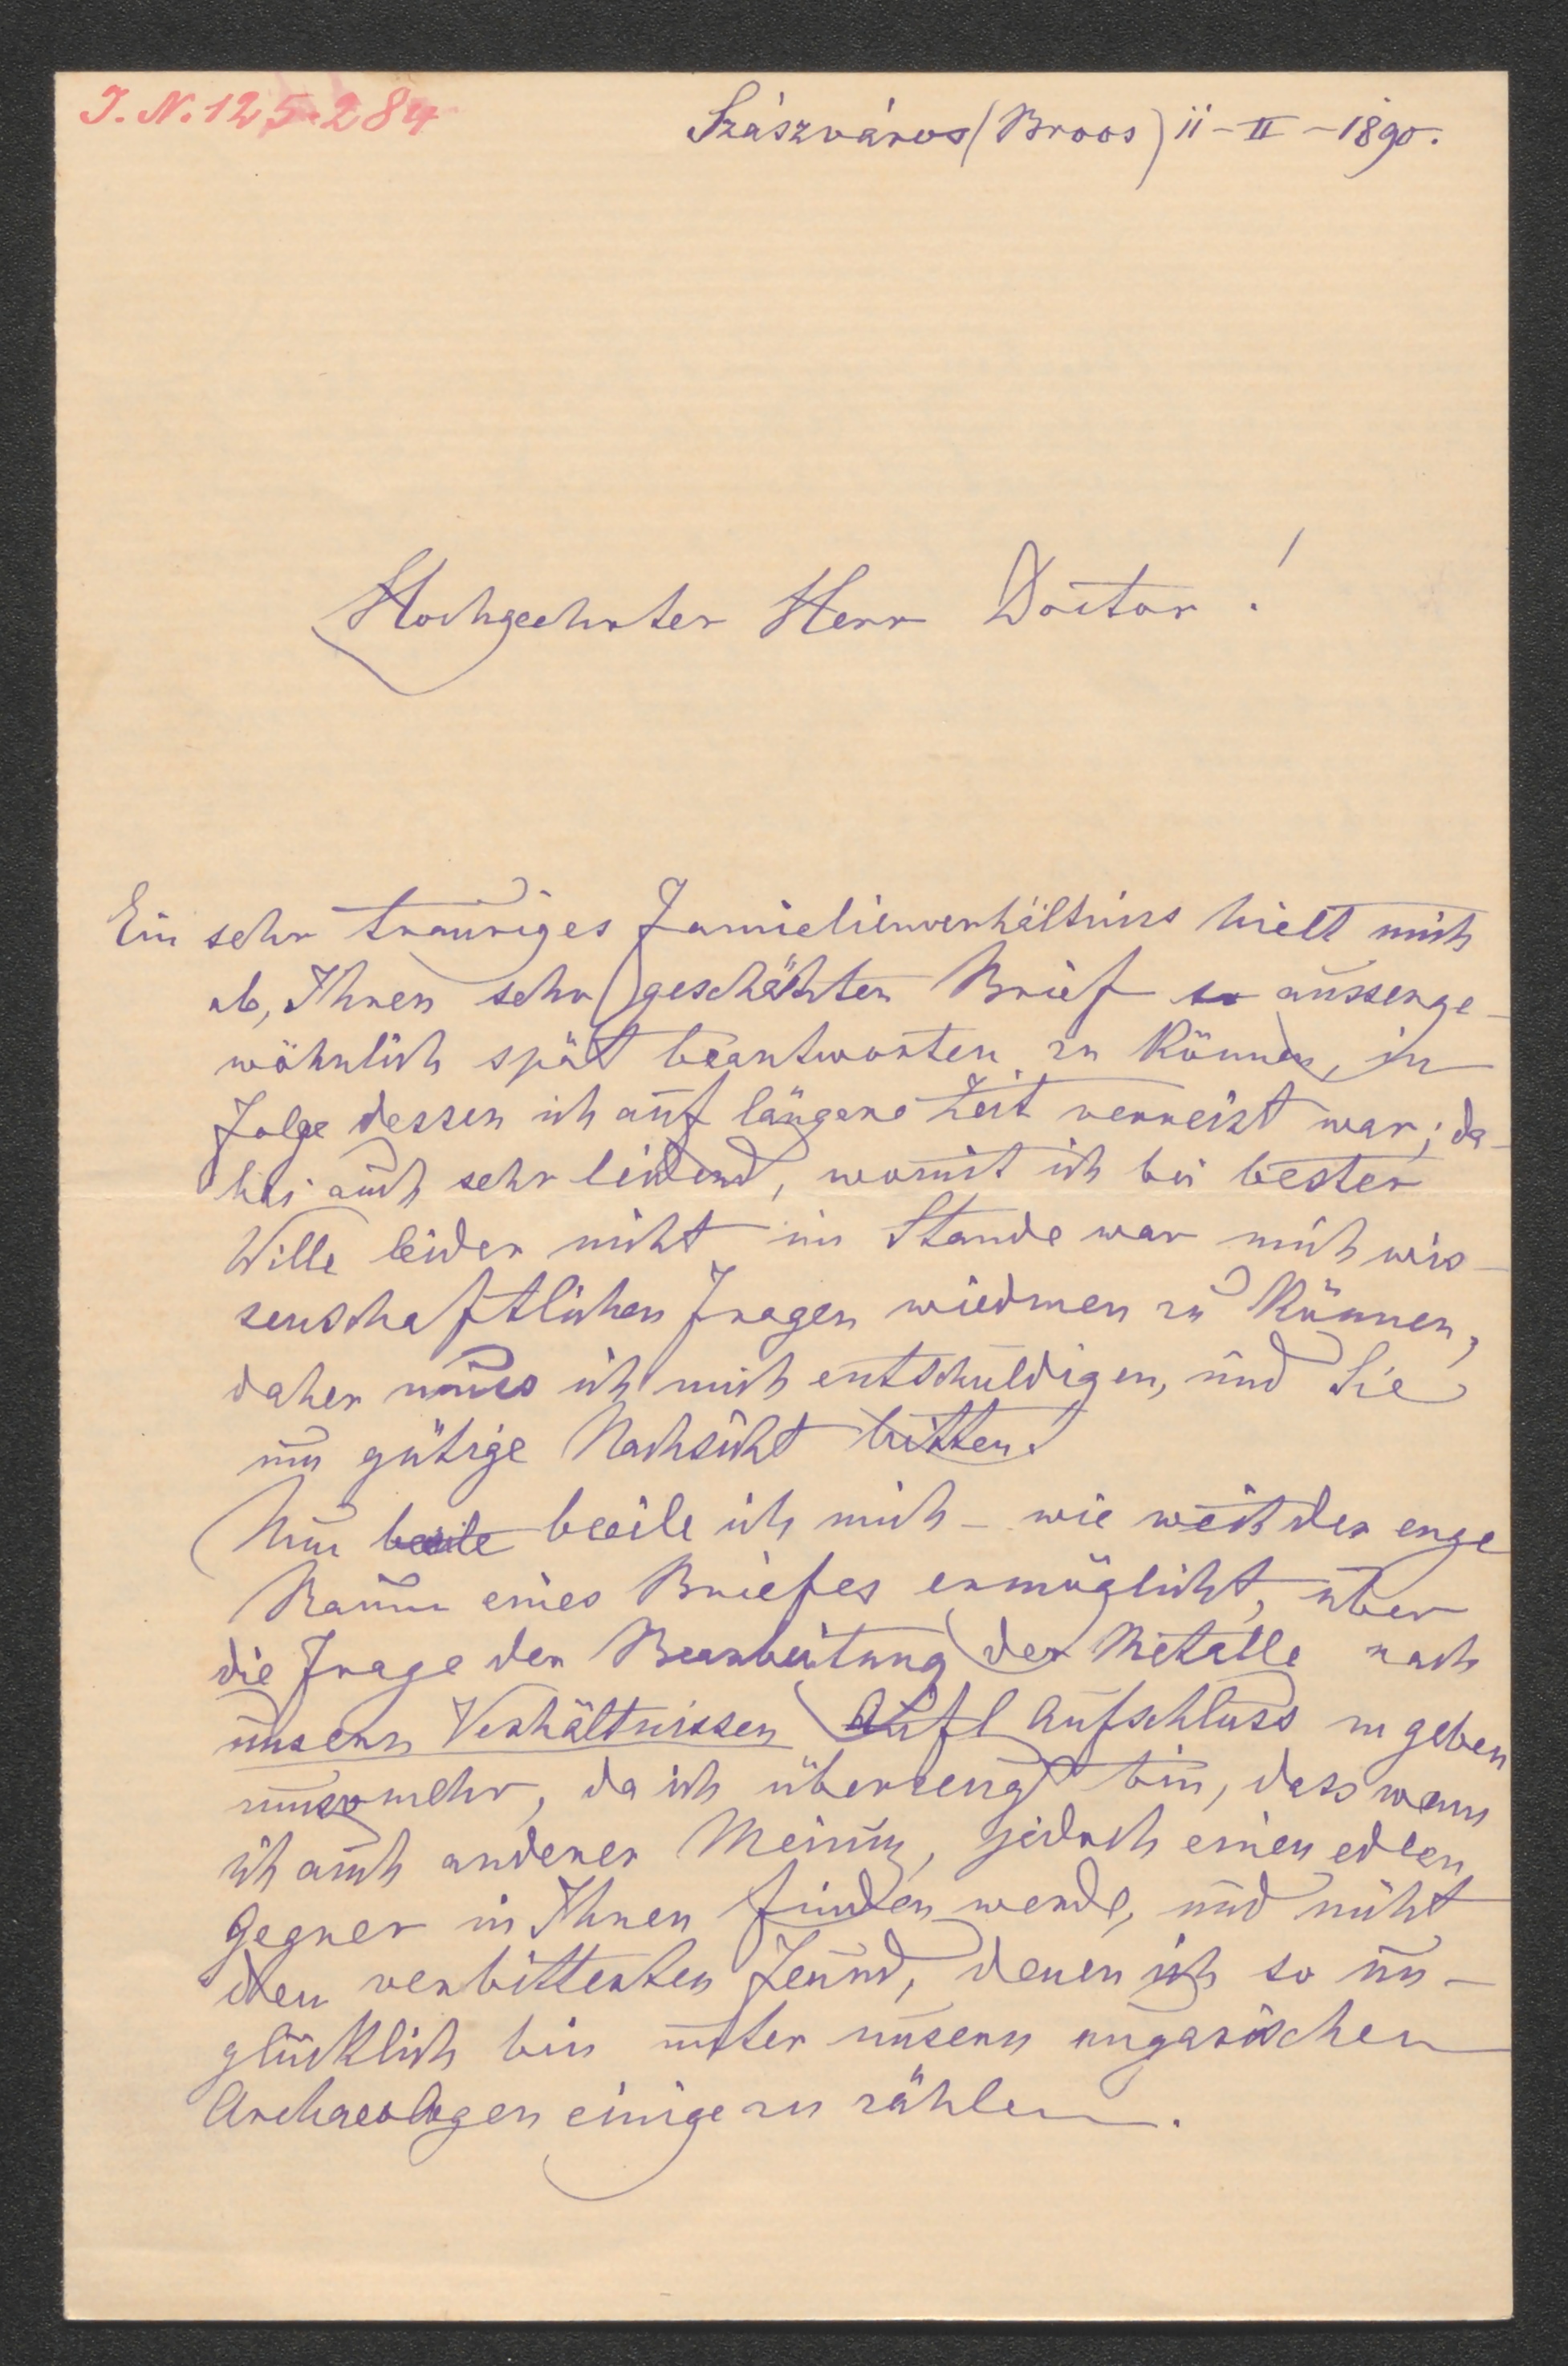 I. N. 125.284
Szászváros (Broos) 11-II-1890.
Hochgeehrter Herr Doctor!
Ein sehr trauriges Familienverhältniss hielt mich
ab, Ihren sehr geschätzten Brief so aussenge-
wöhnlich spät beantworten zu können, in
Folge dessen ich auf längere Zeit verreist war; da-
bei auch sehr leidend, womit ich bei bester
Wille leider nicht im Stande war mich wis-
senschaftlichen Fragen wiedmen zu können,
daher muss ich mich entschuldigen, und Sie
um gütige Nachsicht bitten.
Nun beeile beeile ich mich – wie weit der enge
Raum eines Briefes ermöglicht, über
die Frage der Bearbeitung der Metalle nach
unsern Verhältnissen Aufl Aufschluss zu geben
umsomehr, da ich überzeugt bin, dass wenn
ich auch anderer Meinung, jedoch einen edlen
Gegner in Ihnen finden werde, und nicht
den verbitterten Feund, denen ich so un-
glücklich bin unter unsern ungarischen
Archaeologen einige zu zählen.